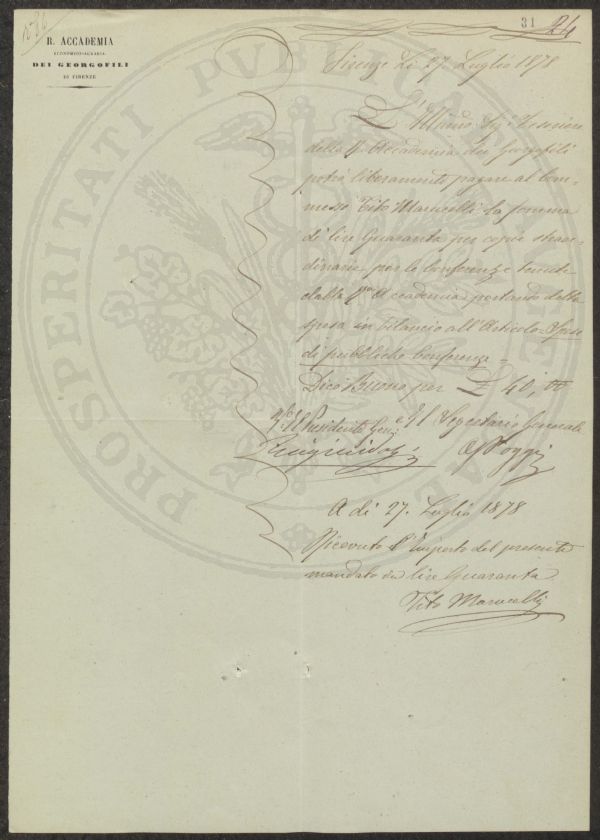 31 24
R. ACCADEMIA
ECONOMICO-AGRARIA
DEI GEORGOFILI
DI FIRENZE
PROSPERITATI PUBLICAE
Firenze Li 27. Luglio 1878
L'Ill.mo Sig. Tesoriere
della R. Accademia dei Georgofili
potrà liberamente pagare al Com-
messo Tito Marucelli la somma
di lire Quaranta per copie straor-
dinarie per le Conferenze tenute
dalla R. Accademia portando detta
spesa in bilancio all'Articolo Spese
di pubbliche Conferenze =
Dico Buono per £ 40,00
Il Presidente Il Segretario Generale
A di 27. Luglio 1878
Ricevuto l'Importo del presente
mandato in lire Quaranta
Tito Marucelli